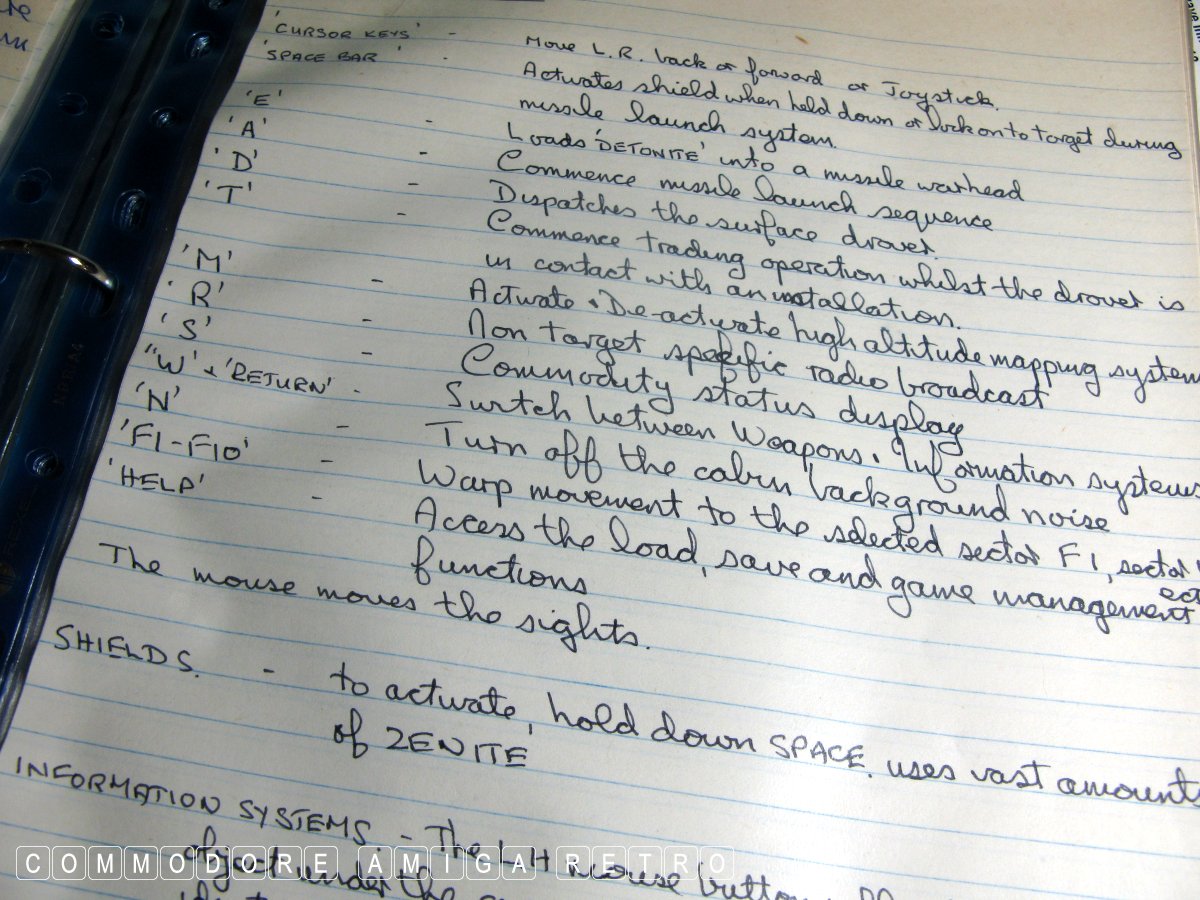 'CURSOR KEYS' - Move L.R. back or forward or Joystick.
'SPACE BAR' - Activates shield when held down or lock on to target during
missile launch system.
'E' - Loads 'DETONITE' into a missile warhead
'A' - Commence missile launch sequence
'D' - Dispatches the surface drover.
'T' - Commence trading operation whilst the drover is
in contact with an installation.
'M' - Activate + De-activate high altitude mapping system
'R' - Non target specific radio broadcast
'S' - Commodity status display
"W' + 'RETURN' - Switch between Weapons + Information systems
'N' - Turn off the cabin background noise
'F1-F10' - Warp movement to the selected sector F1, sector
ect
'HELP' - Access the load, save and game management
functions
The mouse moves the sights.
SHIELDS. - to activate, hold down SPACE. uses vast amounts
of ZENITE'
INFORMATION SYSTEMS. - The LH mouse button
object under the
COMMODORE AMIGA RETRO